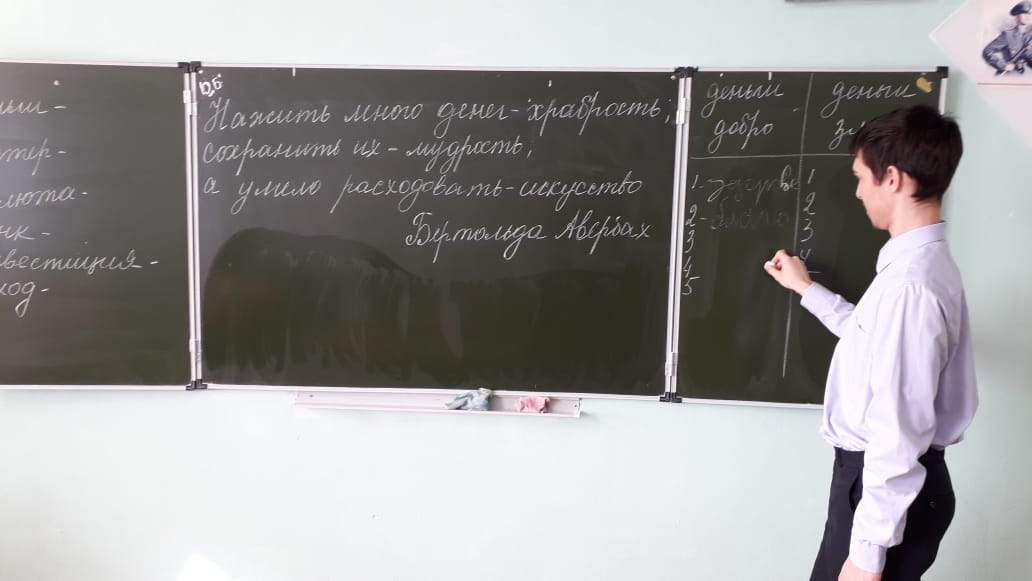 ным -
тер-
люта-
нк-
вестиция-
ход-
10,5
Нажить много денег - храбрость;
сохранить их - мудрость,
а умело расходовать - искусство
Бертольда Авербах
деньги
добро
деньги
1. здоровье
2
3
4
5
1
2
3
4